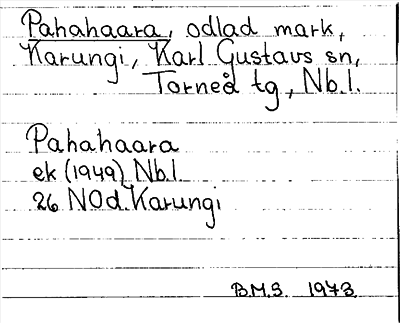 Pahahaara, odlad mark,
Karungi, Karl Gustavs sn,
Torneå tg, Nb.l.
Pahahaara
ek (1949) Nb.l.
26 NOd. Karungi
B.M.S. 1973